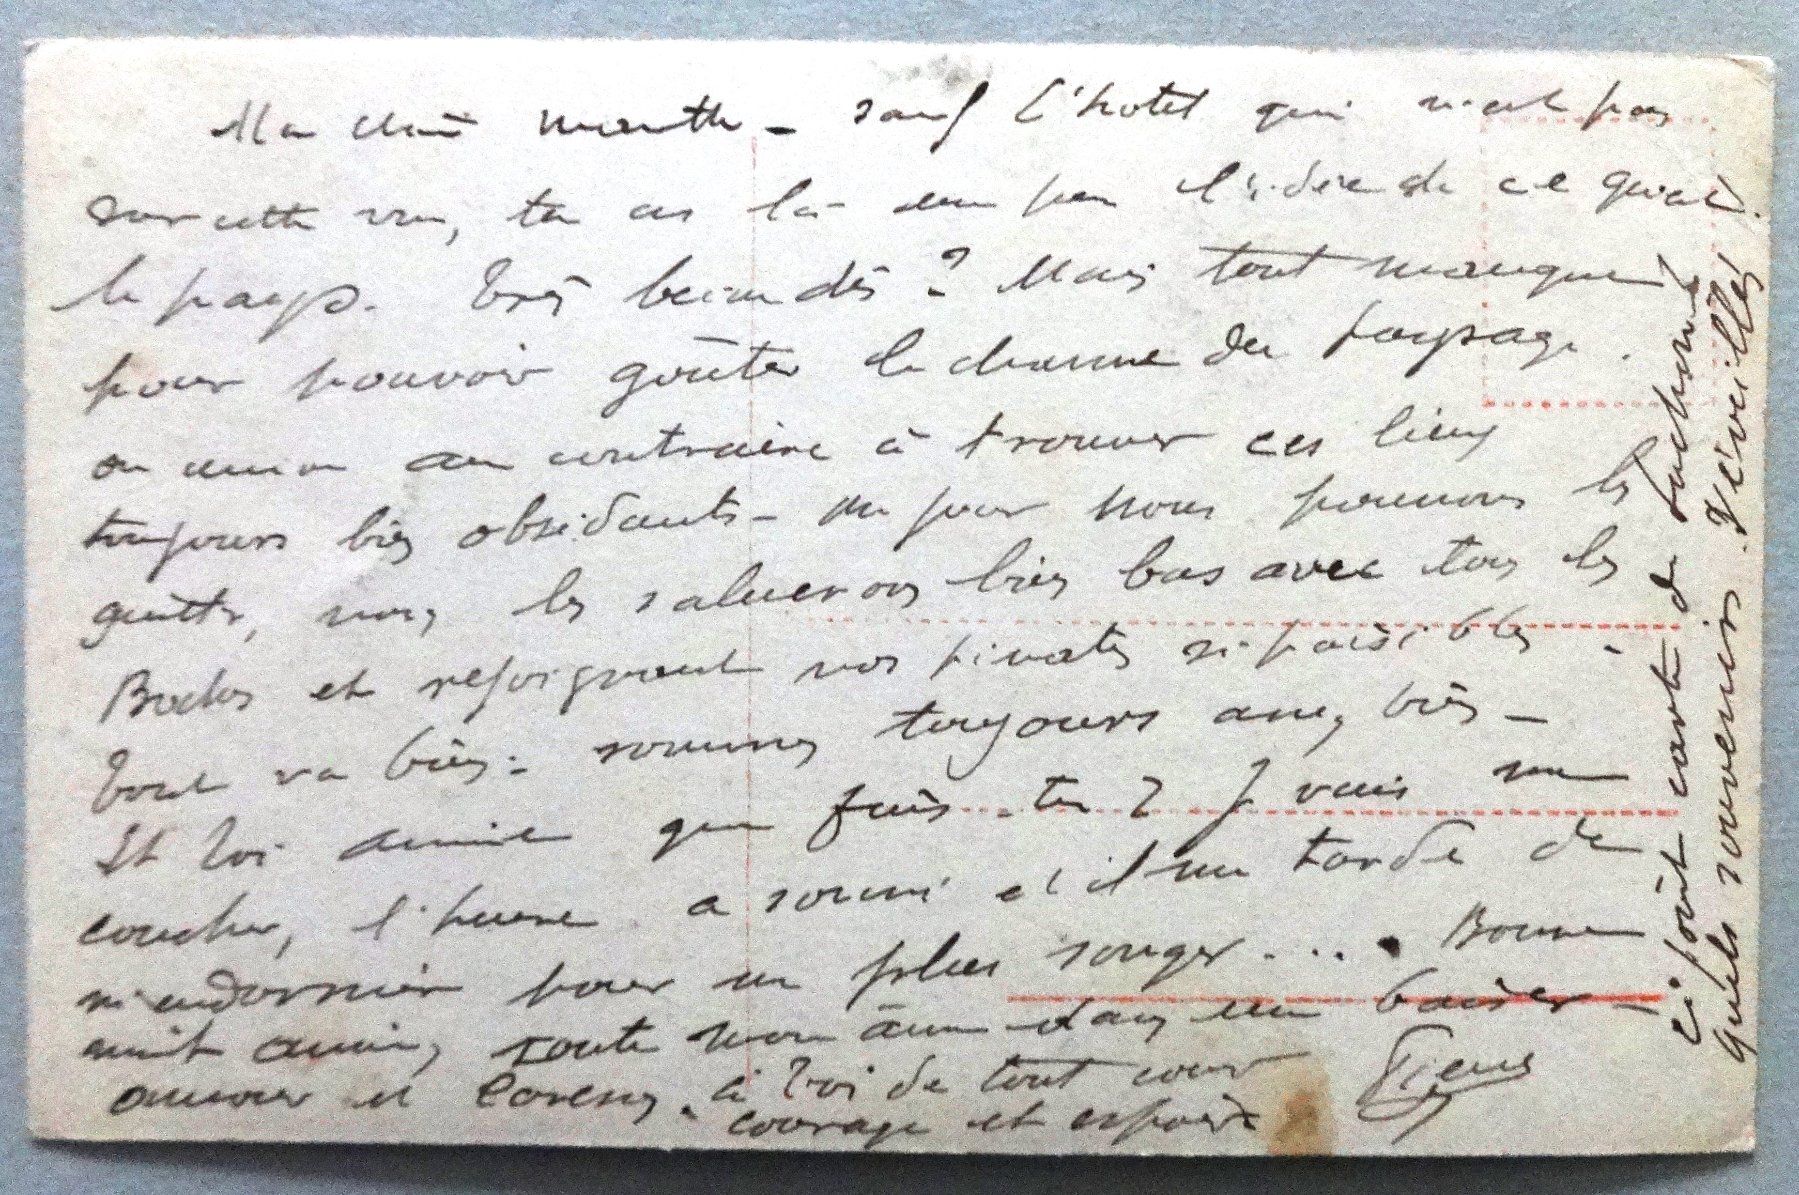 Ma chère menthe - sauf l'hotel qui n'est pas
sur cette vue, tu as là un peu l'idée de ce qu'est
le pays. Très beau dis ? Mais tout manque
pour pouvoir goûter le charme du paysage.
on arrive au contraire à trouver ces lieux
toujours bien obsédants - un jour nous pourrons les
quitter, nous les saluerons bien bas avec tous les
Boches et rejoignant nos pénates si paisibles -
Tout va bien - sommes toujours assez bien -
Et toi amie que fais-tu ? Je vais me
coucher, l'heure a sonné et il me tarde de
m'endormir pour ne plus songer .... Bonne
nuit amie, toute mon âme dans un baiser -
amour et caresses. à Toi de tout cœur
courage et espoir
ci-joint carte de
quels souvenirs réveillés !